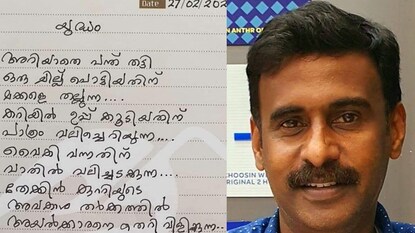 Date 27/02/202
യുദ്ധം
അറിയാതെ പന്ത് തട്ടി
ഒരു ചില്ല് പൊട്ടിയതിന്
മക്കളെ തല്ലുന്ന....
കറിയിൽ ഉപ്പ് കൂടിയതിന്
പാത്രം വലിച്ചെറിയുന്ന....
വൈകി വന്നതിന്
വാതിൽ വലിച്ചടക്കുന്ന....
തേക്കിൻ കുറ്റിയുടെ
അവകാശ തർക്കത്തിൽ
അയൽക്കാരനെ തെറി വിളിക്കുന്ന..
AN ANTHR
CHOOSIN W
RIGINAL 2 H